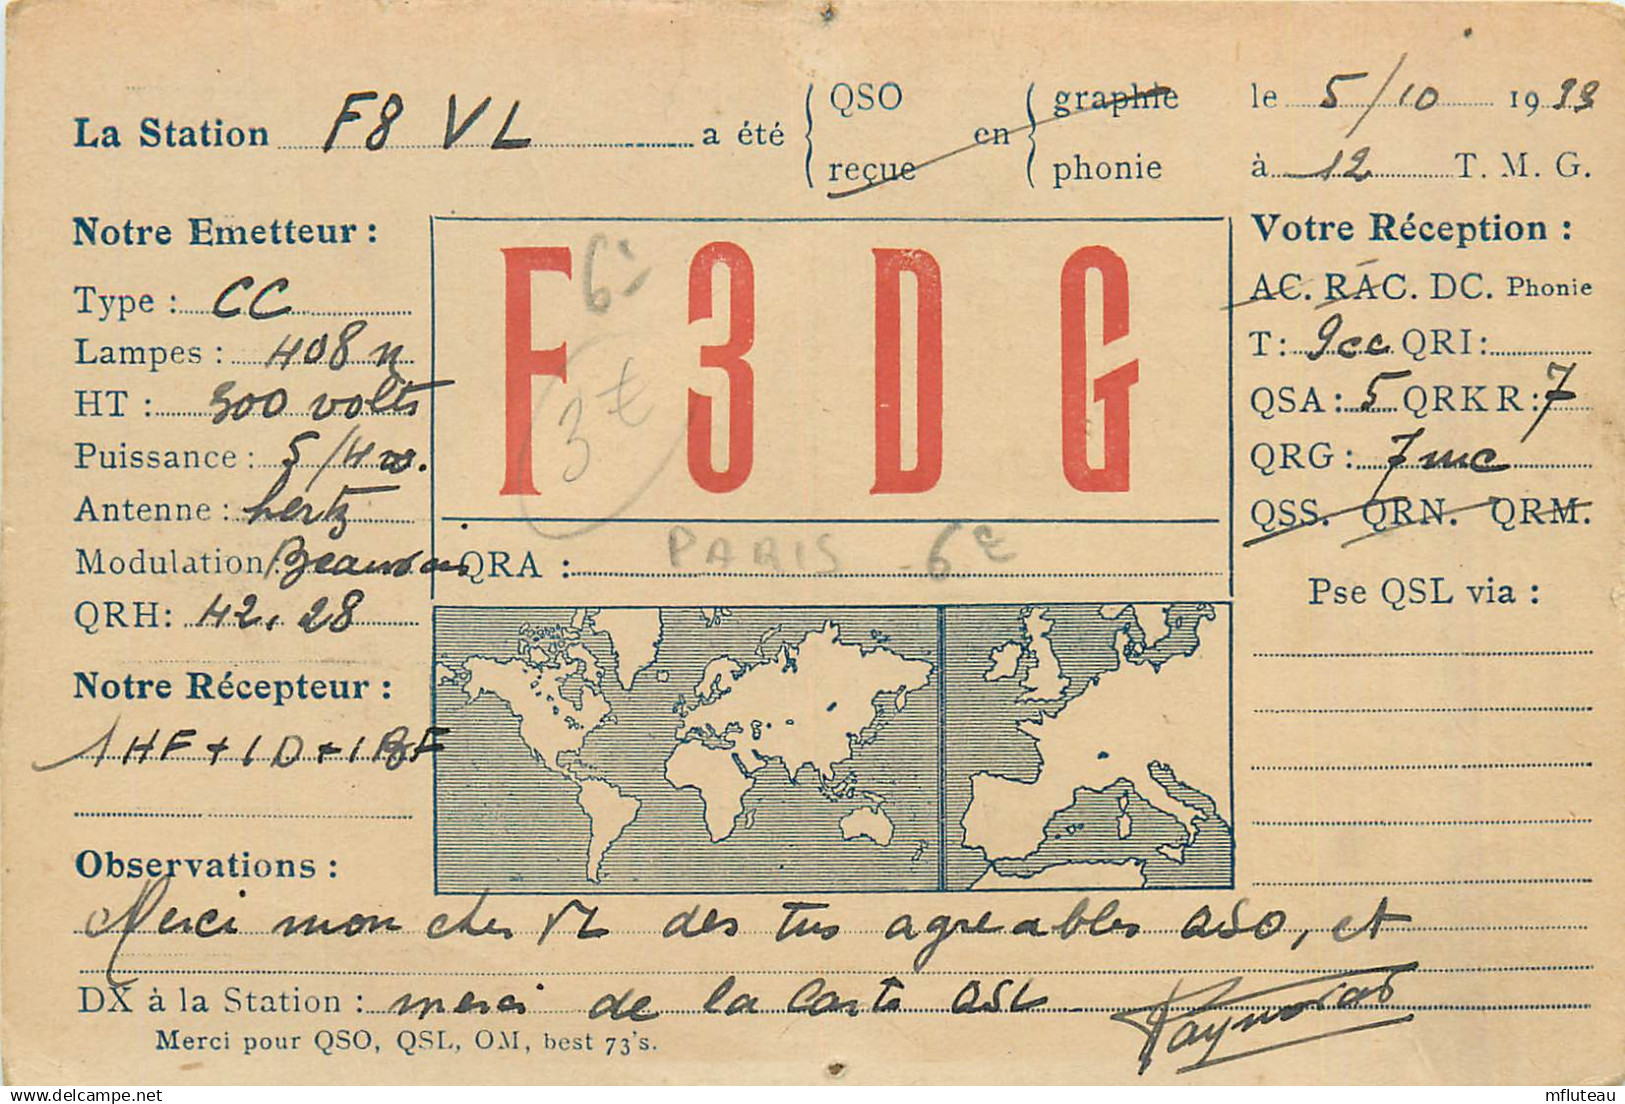 La Station F8 VL a été QSO reçue en graphie phonie le 5/10 19
à 12 T. M. G.
Notre Emetteur :
Type : CC
Lampes : 408 n
HT : 300 volts
Puissance : 5/4 w.
Antenne : hertz
Modulation
QRH : 42, 28
Notre Récepteur :
1 HF + 1 D + 1 BF
F 3 DG
6:
3 €
QRA : PARIS - 6E
Votre Réception :
AC. RAC. DC. Phonie
T : 9cc QRI :
QSA : 5 QRK R : 7
QRG : 7 mc
QSS. QRN. QRM.
Pse QSL via :
Observations :
Merci mon cher VL des tus agreables QSO, et
DX à la Station : merci de la Carte QSL
Merci pour QSO, QSL, OM, best 73's.
mfluteau